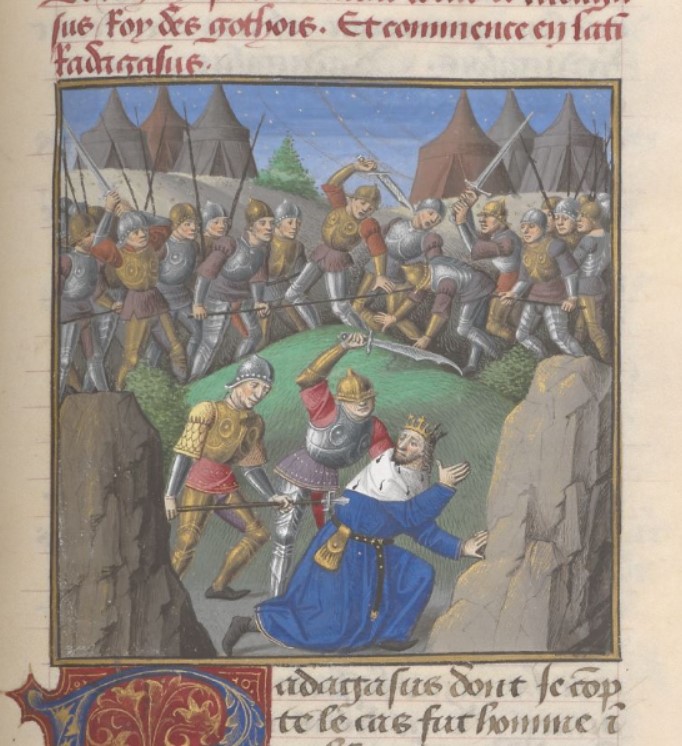 sus Roy des gothois. Et commence en lati
Radagasus.
adagasus dont je cop
te le cas fut homme